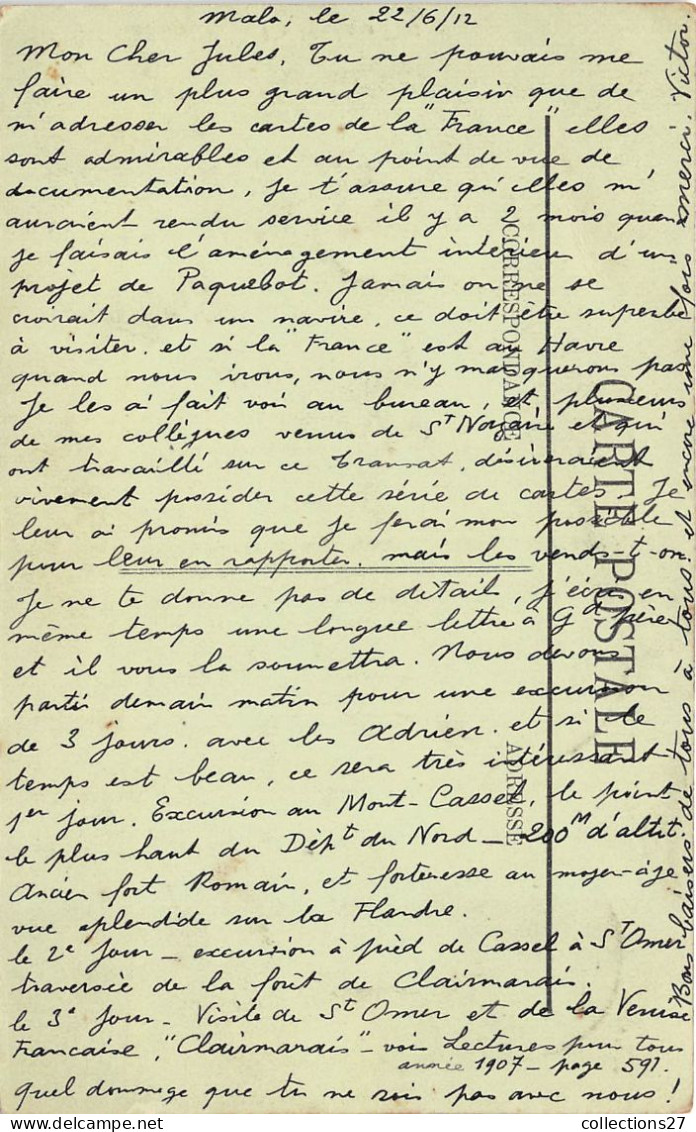 Malo, le 22/6/12
Mon Cher Jules, Tu ne pouvais me
faire un plus grand plaisir que de
m'adresser les cartes de la "France" elles
sont admirables et au point de vue de
documentation, je t'assure qu'elles m'
auraient rendu service il y a 2 mois quand
je faisais l'aménagement intérieur d'un
projet de Paquebot. Jamais on ne se
croirait dans un navire, ce doit être superbe
à visiter. et si la "France" est au Havre
quand nous irons, nous n'y manquerons pas
Je les ai fait voir au bureau, et plusieurs
de mes collègues venus de St Nazaire et qui
ont travaillé sur ce Transat, désireraient
vivement posséder cette série de cartes. Je
leur ai promis que je ferai mon possible
pour leur en rapporter. mais les vends-t-on.
Je ne te donne pas de détails, j'écris en
même temps une longue lettre à Gd père
et il vous la soumettra. Nous devons
partir demain matin pour une excursion
de 3 jours. avec les Adrien. et si le
temps est beau, ce sera très intéressant
1er jour. Excursion au Mont-Cassel, le point
le plus haut du Dépt du Nord - 200M d'altit
Ancien fort Romain, et forteresse au moyen-âge
vue splendide sur la Flandre.
le 2e Jour - excursion à pied de Cassel à St Omer
traversée de la forêt de Clairmarais.
le 3e Jour - Visite de St Omer et de la Venise
Francaise, "Clairmarais" - vois Lectures pour tous
année 1907 - page 591.
Quel dommage que tu ne sois pas avec nous!
Bons baisers de tous à tous. et encore une fois merci. Victor
CARTE POSTALE
CORRESPONDANCE
ADRESSE
collections27